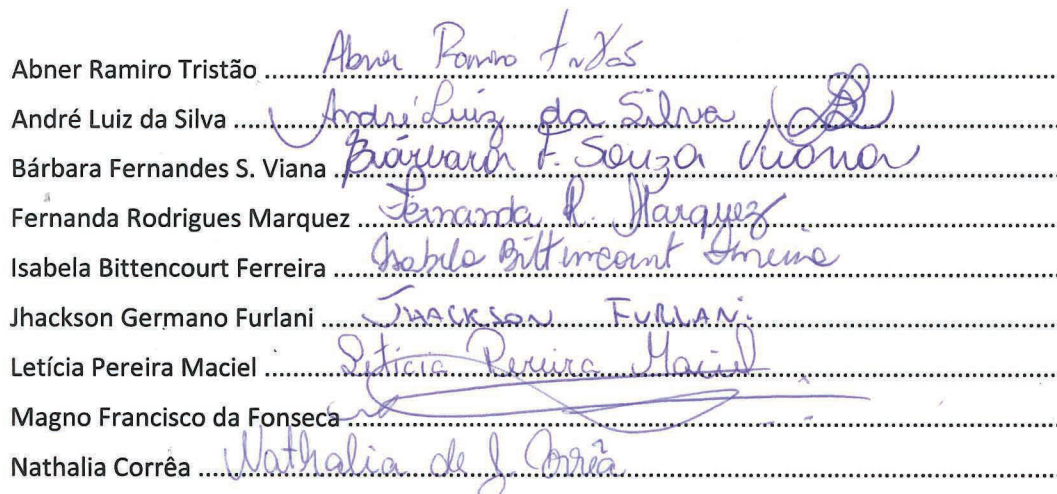 Abner Ramiro Tristão ........ Abner Ramiro Tristão
André Luiz da Silva ........ André Luiz da Silva
Bárbara Fernandes S. Viana ........ Bárbara F. Souza Viana
Fernanda Rodrigues Marquez ........ Fernanda R. Marquez
Isabela Bittencourt Ferreira ........ Isabela Bittencourt Ferreira
Jhackson Germano Furlani ........ JHACKSON FURLANI.
Letícia Pereira Maciel ........ Letícia Pereira Maciel
Magno Francisco da Fonseca ........
Nathalia Corrêa ........ Nathalia de J. Corrêa